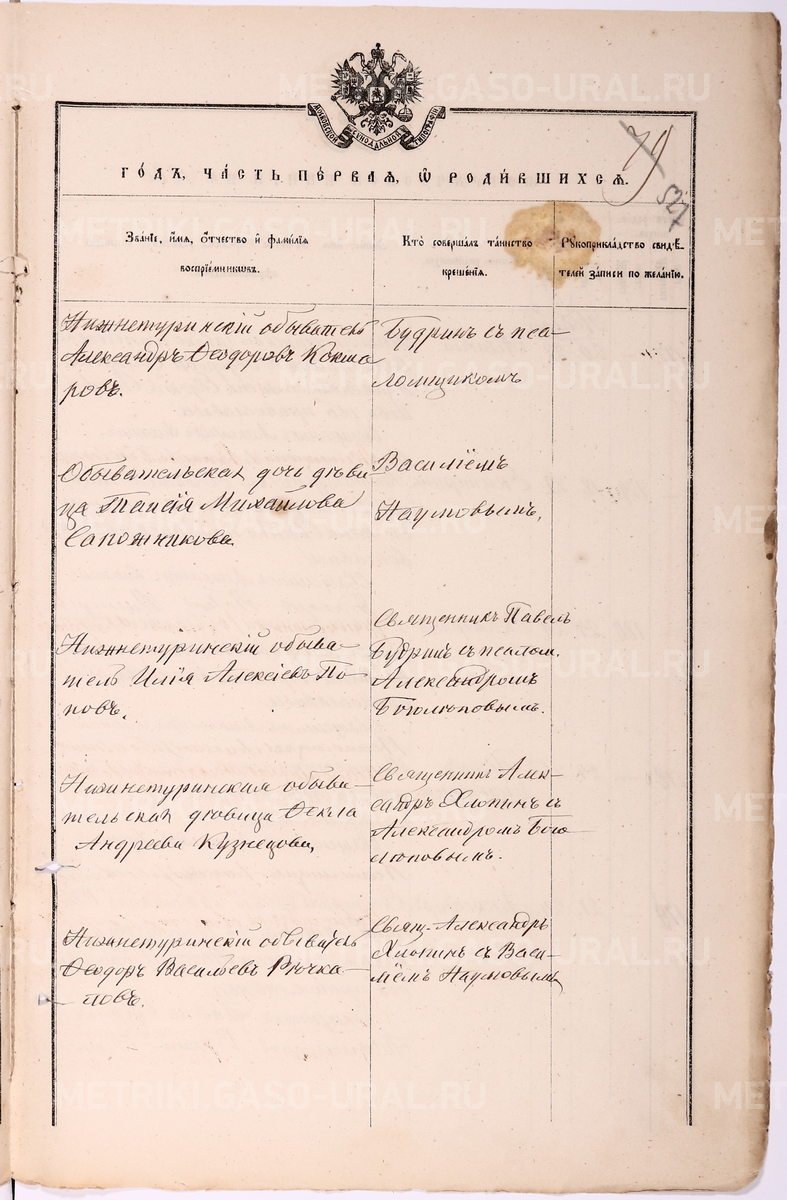 МОСКОВСКОЙ СѴНОДАЛЬНОЙ ТИПОГРАФІИ
79
527
ГОДЪ, ЧАСТЬ ПЕРВАЯ, Ѡ РОДИВШИХСЯ.
Званіе, имя, отчество и фамилія
воспріемниковъ.
Кто совершалъ таинство
крещенія.
Рукоприкладство свидѣ-
телей записи по желанію.
Нижнетуринскій обыватель
Александръ Ѳеодоровъ Кокша
ровъ.
Будринъ съ пса-
ломщикомъ
Обывательская дочь дѣви
ца Таисія Михайлова
Сапожникова.
Василіемъ
Наумовымъ.
Нижнетуринскій обыва-
тель Илія Алексіевъ По-
повъ.
Священникъ Павелъ
Будринъ съ псалом.
Александромъ
Боголюповымъ.
Нижнетуринская обыва-
тельская дѣвица Ѳекла
Андреева Кузнецова,
Священникъ Алек-
сандръ Хлопинъ съ
Александромъ Бого
люповымъ.
Нижнетуринскій обыватель
Ѳеодоръ Васильевъ
Свящ. Александръ
Хлопинъ с Васи-
ліемъ Наумовымъ
METRIKI.GASO-URAL.RU